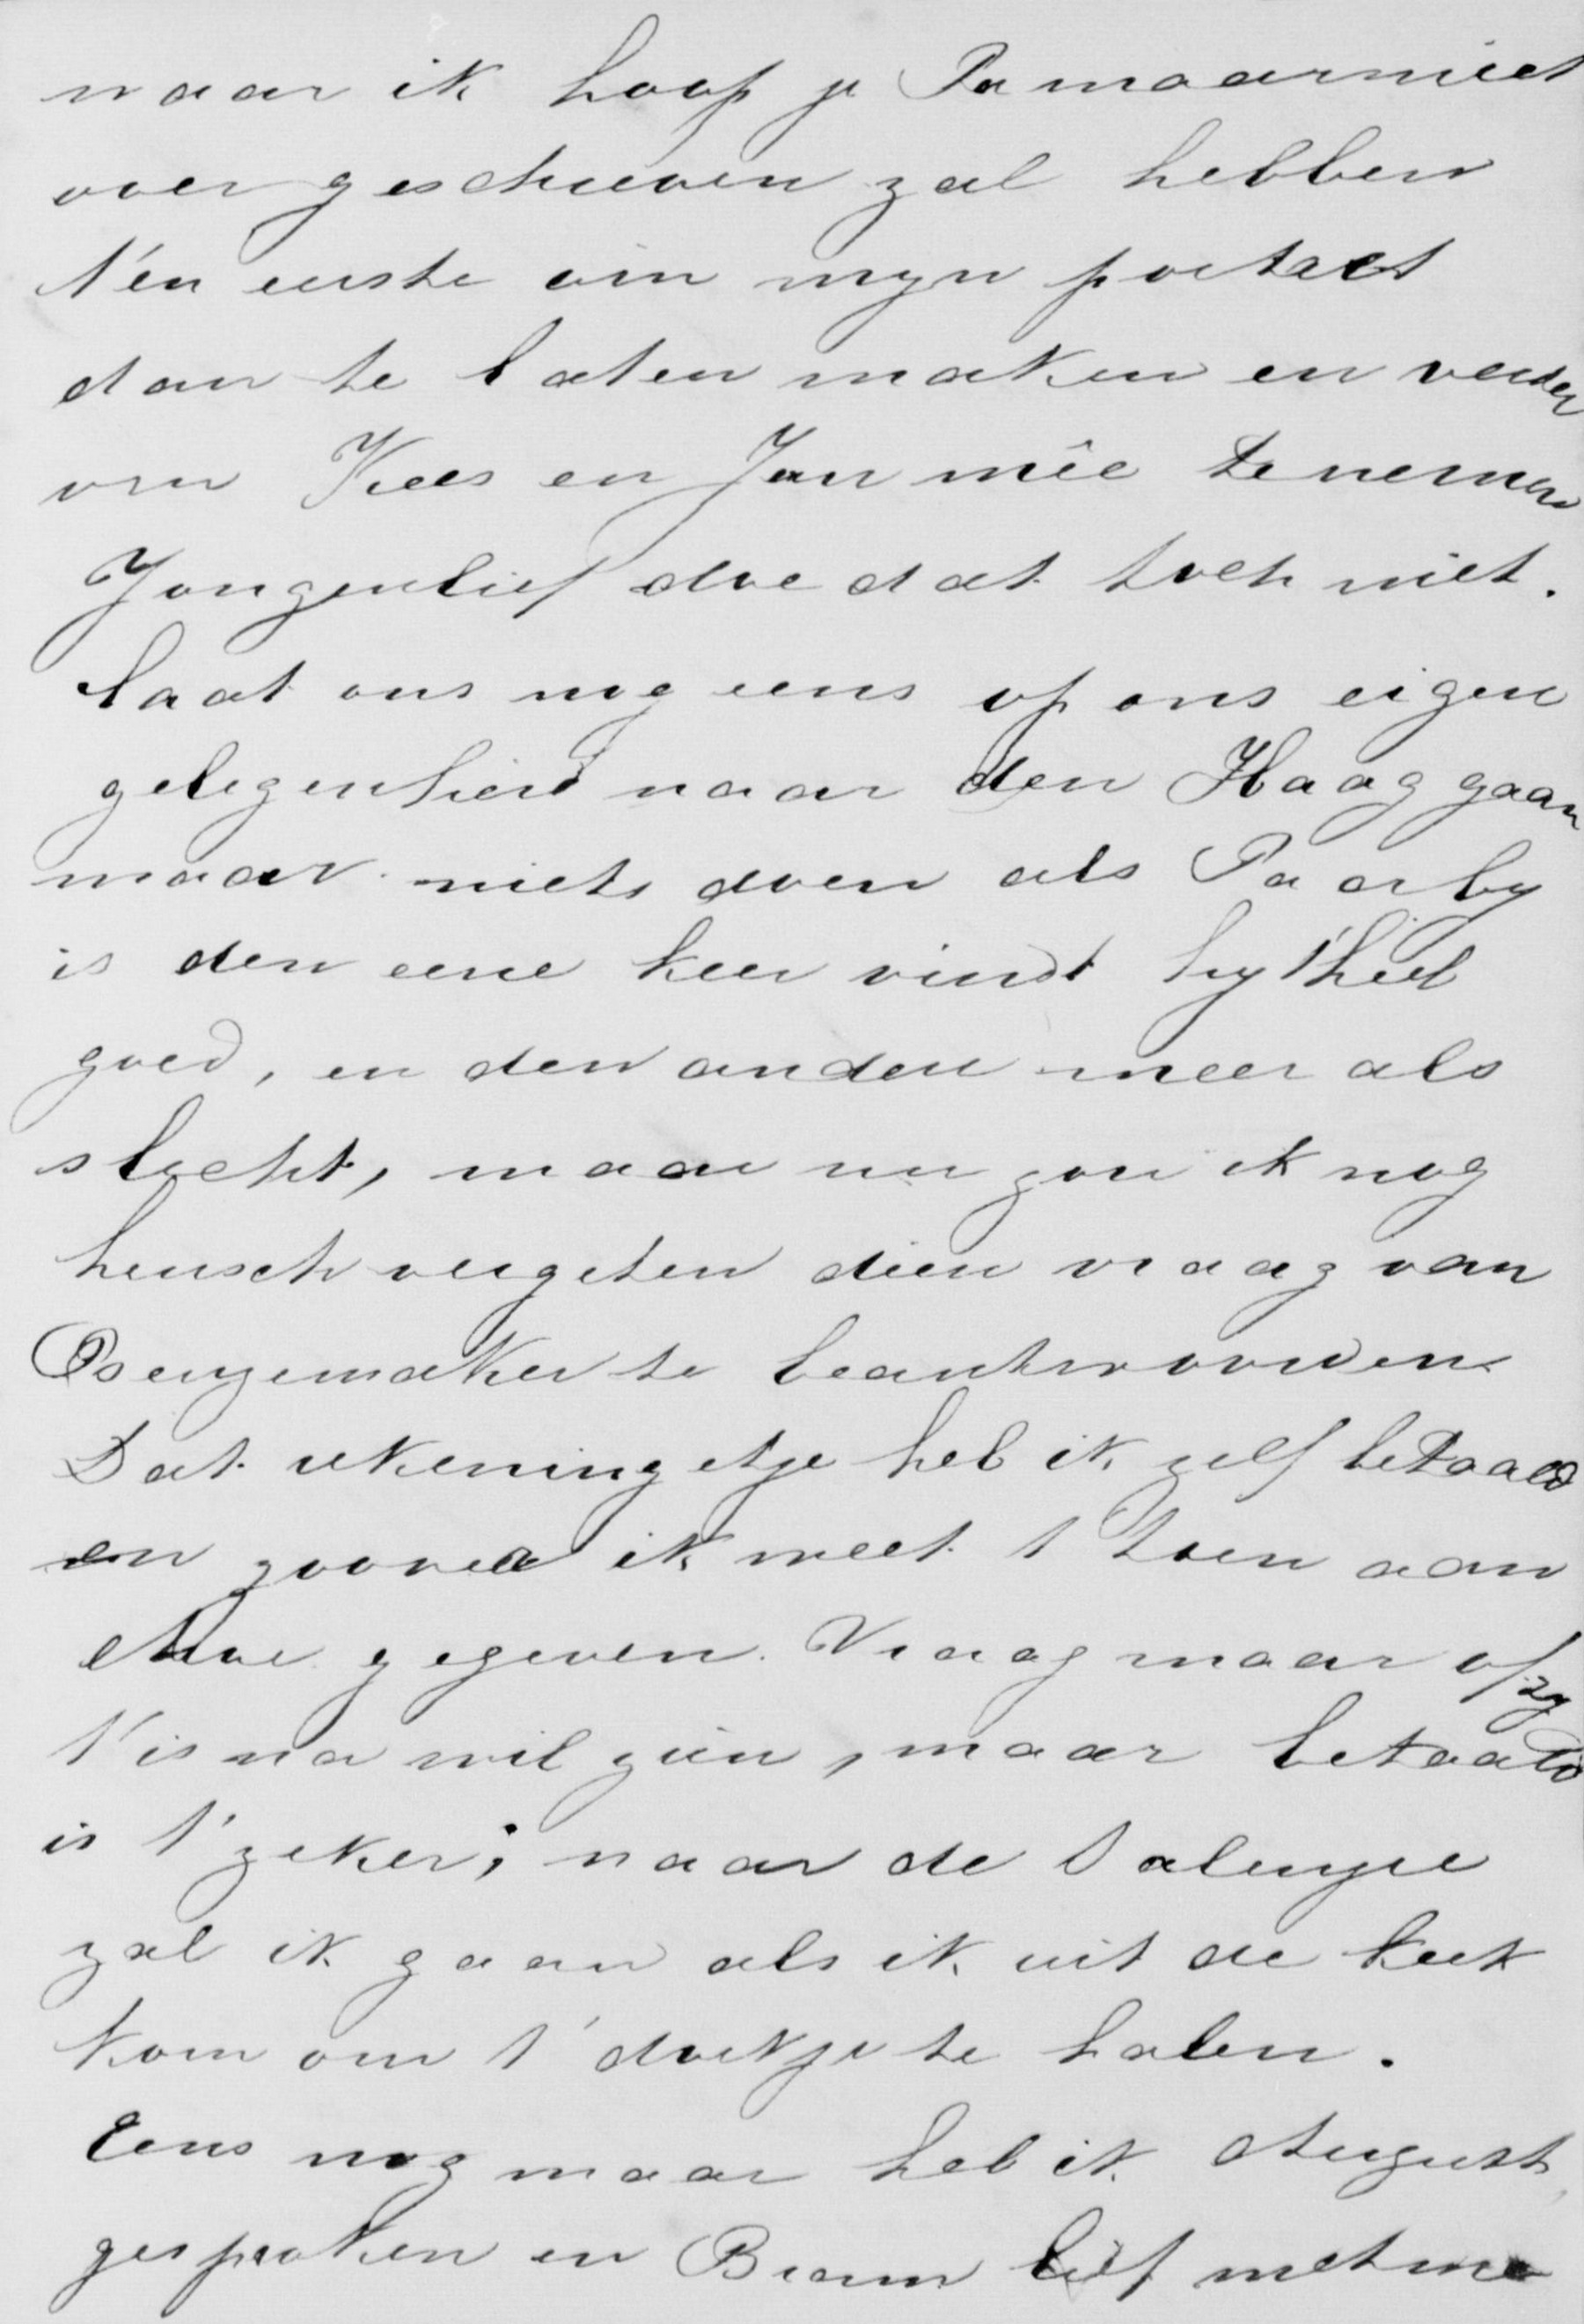 waar ik hoop je Pa maar niet
over geschreven zal hebben
t'en eerste om myn portret
dan te laten maken en verder
om Kees en Jan mêe te nemen
Jongenlief doe dat toch niet.
laat ons nog eens op ons eigen
gelegenheid naar den Haag gaan
maar niets doen als Pa erby
is den eene keer vindt hy 't heel
goed, en den andere meer als
slecht, maar nu zou ik nog
heusch vergeten dien vraag van
te beantwoorden.
Dat rekeningetje heb ik zelf betaald
en zooveel ik weet 't toen aan
gegeven. Vraag maar of zy
't is na wil zien, maar betaald
is t' zeker; naar de
zal ik gaan als ik uit de kerk
kom om t' doekje te halen.
Eens nog maar heb ik August
gesproken en Bram lief met me